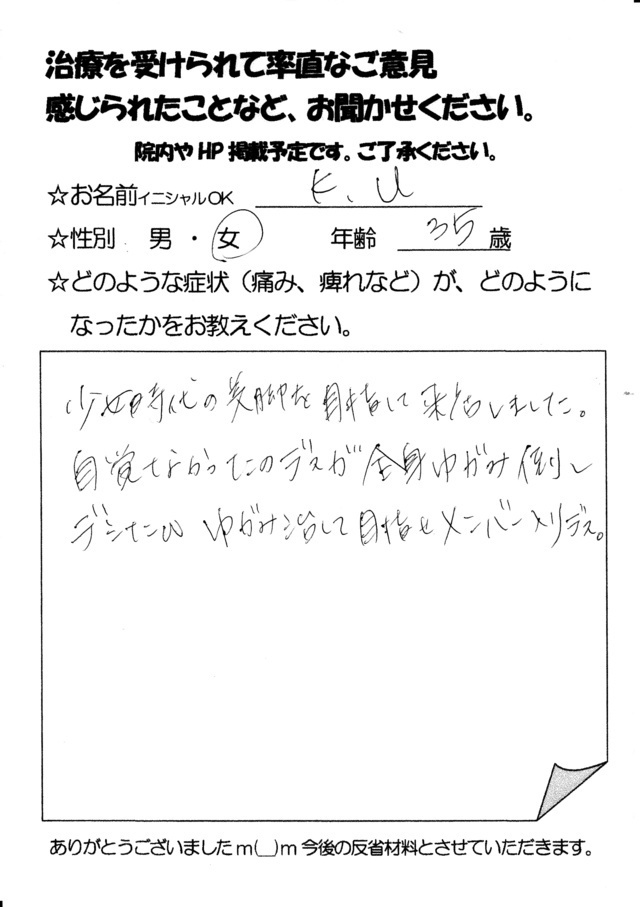 治療を受けられて率直なご意見
感じられたことなど、お聞かせください。
院内やHP掲載予定です。ご了承ください。
☆お名前イニシャルOK K、U
☆性別 男・女 年齢 35 歳
☆どのような症状（痛み、痺れなど）が、どのように
なったかをお教えください。
少女時代の美脚を目指して来店しました。
自覚なかったのデスが全身ゆがみ倒し
デシたひ ゆがみ治して目指せメンバー入りデス。
ありがとうございましたm(__)m今後の反省材料とさせていただきます。